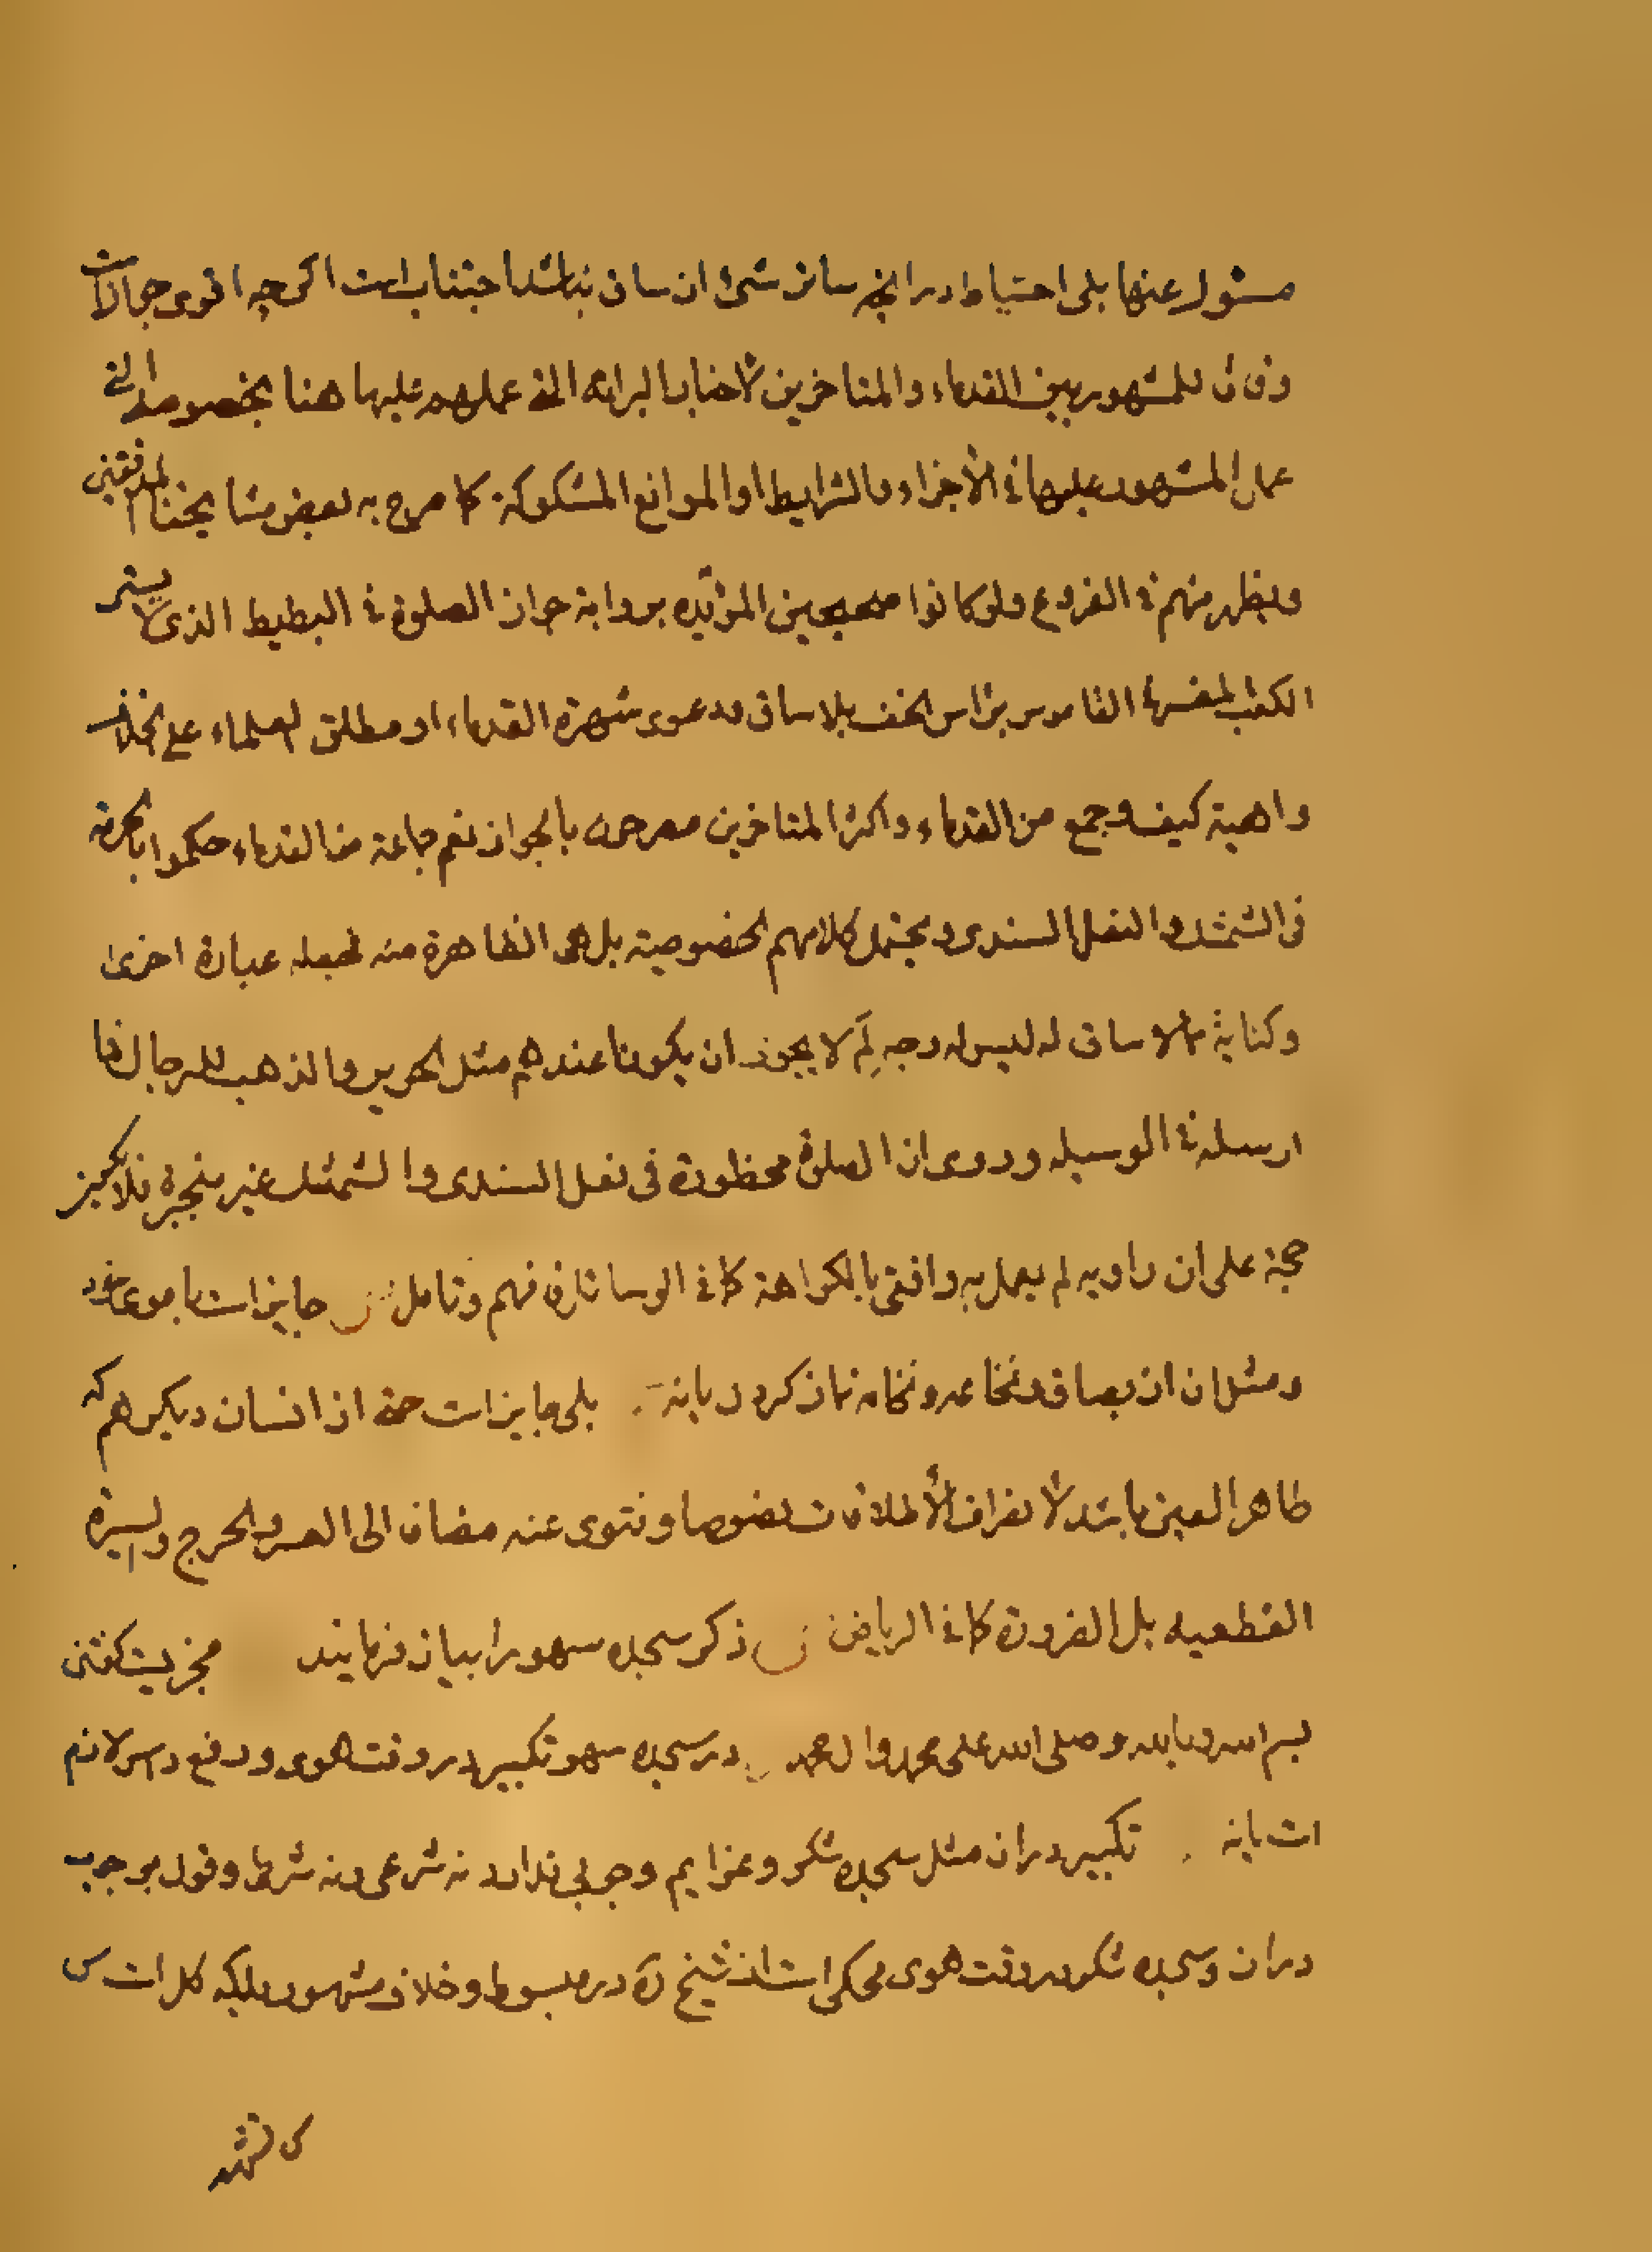 مسئول عنها بلی احتیاط در آنچه ساتر شیء از ساق نباشد اجتناب است اگرچه اقوی جواز است
وفاقا للمشهور بین القدماء و المتاخرین لاخبار البرائه التی عملهم علیها هنا بخصوصه التی
عمل المشهور علیها فی الأجزاء والشرایط او الموانع المشکوکة کما صرح به بعض مشایخنا المدققین
ویظهر منهم فی الفروع ولو کانوا صحیحیین المؤیده بروایة جواز الصلوة فی البطیط الذی لا یستر
الکعب المفسر فی القاموس براس الخف بلا ساق ودعوی شهرة القدماء او مطلق العلماء علی الخلاف
واهیة کیف وجمع من القدماء و اکثر المتاخرین مصرحون بالجواز نعم جماعة من القدماء حکموا بالحرمة
فی الشمشک والنعل السندی ویحتمل کلامهم الخصوصیة بل هی الظاهرة منه فجعله عبارة اخری
وکنایة عما لا ساق له لیس له وجه لِمَ لا یجوز ان یکونا عندهم مثل الحریر والذهب للرجال فما
ارسله فی الوسیله وروی ان الصلوة محظورة فی نعل السندی والشمشک غیر منجبرة فلا تجیز
حجة علی ان راویه لم یعمل به وافتی بالکراهة کما فی الوسائل فافهم وتامل س جایز است با موی خود
ومثل ان از بصاق ونخاعه ونخامه نماز کردن یا نه بلی جایز است حتی از انسان دیگر هم که
طاهر العین باشد لانصراف الأطلاقات نصوصا وفتوی عنه مضافا الی العسر والحرج والسیرة
القطعیه بل الضرورة کما فی الریاض س ذکر سجده سهو را بیان فرمایند مجزیست گفتن
بسم الله وبالله وصلی الله علی محمد وال محمد س در سجده سهو تکبیر در وقت هوی ورفع راس لازم
است یا نه تکبیر در ان مثل سجده شکر وعزایم وجوبی ندارد نه شرعی ونه شرطی وقول بوجوب
در ان وسجده شکر در وقت هوی محکی است از شیخ ره در مبسوط وخلاف مشهور بلکه کل است س